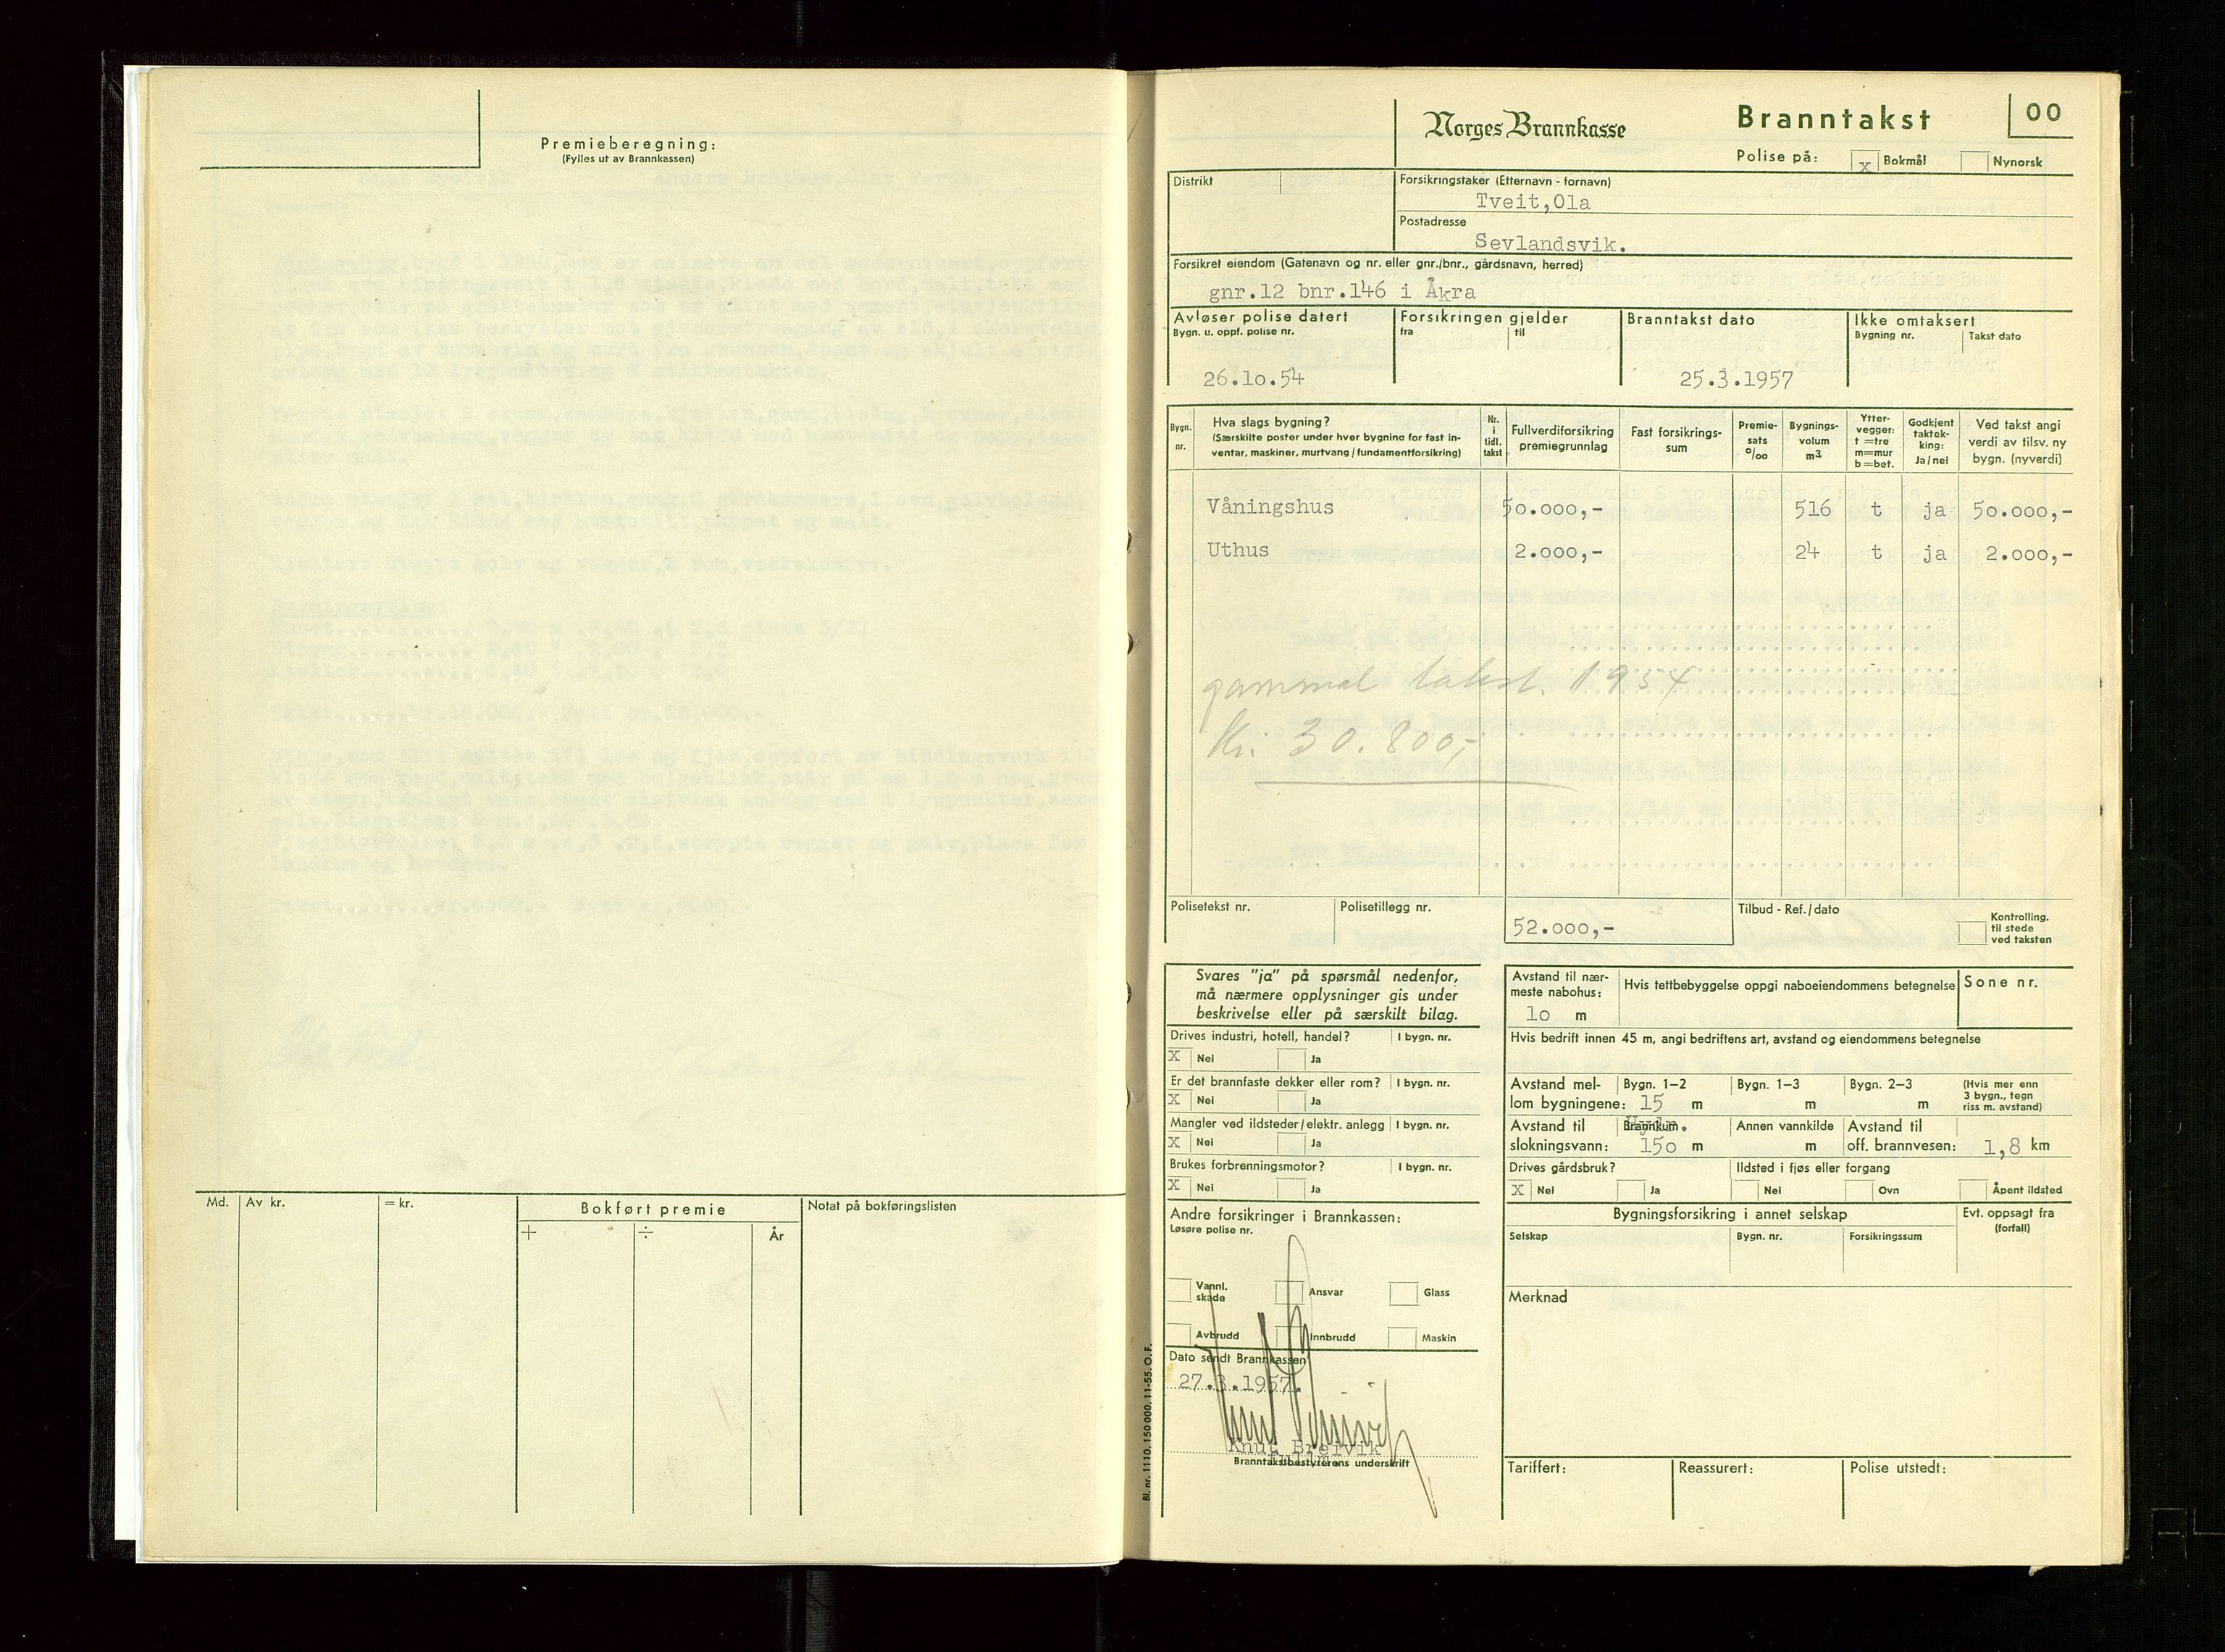 Premieberegning:
(Fylles ut av Brannkassen)
Md.
Av kr.
= kr.
Bokført premie
+
÷
År
Notat på bokføringslisten
Norges Brannkasse
Branntakst
00
Polise på:
x Bokmål
Nynorsk
Distrikt
Forsikringstaker (Etternavn - fornavn)
Tveit,Ola
Postadresse
Sevlandsvik.
Forsikret eiendom (Gatenavn og nr. eller gnr./bnr., gårdsnavn, herred)
gnr.12 bnr.146 i Åkra
Avløser polise datert
Bygn. u. oppf. polise nr.
26.10.54
Forsikringen gjelder
fra
til
Branntakst dato
25.3.1957
Ikke omtaksert
Bygning nr.
Takst dato
Bygn. nr.
Hva slags bygning?
(Særskilte poster under hver bygning for fast in-
ventar, maskiner, murtvang / fundamentforsikring)
Nr. i tidl. takst
Fullverdiforsikring premiegrunnlag
Fast forsikrings-
sum
Premie-
sats
º/oo
Bygnings-
volum
m3
Ytter-
vegger:
t =tre
m=mur
b=bet.
Godkjent
taktek-
king:
Ja / nei
Ved takst angi
verdi av tilsv. ny
bygn. (nyverdi)
Våningshus 50.000,- 516 t ja 50.000,-
Uthus 2.000,- 24 t ja 2.000,-
gammal takst. 1954
Kr. 30.800,-
Polisetekst nr.
Polisetillegg nr.
52.000,-
Tilbud - Ref./dato
Kontrolling.
til stede
ved taksten
Svares "ja" på spørsmål nedenfor,
må nærmere opplysninger gis under
beskrivelse eller på særskilt bilag.
Drives industri, hotell, handel? I bygn. nr.
X Nei Ja
Er det brannfaste dekker eller rom? I bygn. nr.
X Nei Ja
Mangler ved ildsteder/elektr. anlegg I bygn. nr.
X Nei Ja
Brukes forbrenningsmotor? I bygn. nr.
X Nei Ja
Andre forsikringer i Brannkassen:
Løsøre polise nr.
Vannl.
skade
Ansvar
Glass
Avbrudd
Innbrudd
Maskin
Dato sendt Brannkassen
27.3.1957.
Knut Breivik
Branntakstbestyrerens underskrift
Bl. nr. 1110. 150 000. 11-55. O. F.
Avstand til nær-
meste nabohus:
10 m
Hvis tettbebyggelse oppgi naboeiendommens betegnelse
Sone nr.
Hvis bedrift innen 45 m, angi bedriftens art, avstand og eiendommens betegnelse
Avstand mel-
lom bygningene:
Bygn. 1-2
15 m
Bygn. 1-3
m
Bygn. 2-3
m
(Hvis mer enn
3 bygn., tegn
riss m. avstand)
Avstand til
slokningsvann:
150 m
Annen vannkilde
m
Avstand til
off. brannvesen: 1,8 km
Drives gårdsbruk?
X Nei Ja
Ildsted i fjøs eller forgang
Nei Ovn Åpent ildsted
Bygningsforsikring i annet selskap
Selskap
Bygn. nr.
Forsikringssum
Evt. oppsagt fra
(forfall)
Merknad
Tariffert:
Reassurert:
Polise utstedt: